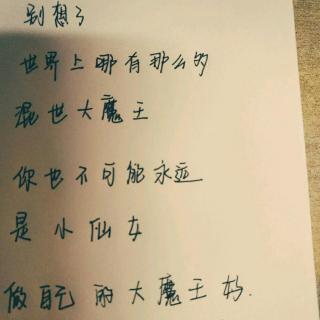 别想了
世界上哪有那么的
混世大魔王
你也不可能永远
是小仙女
做自己的大魔王好.